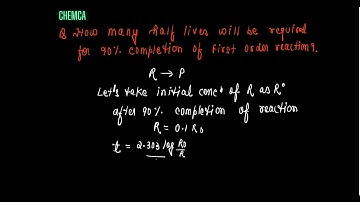 CHEMCA
Q How many half lives will be required
for 90% completion of first order reaction?.
R → P
Let's take initial conc° of R as R°
after 90% completion of reaction
R = 0.1 R₀
t = 2.303 log R₀/R